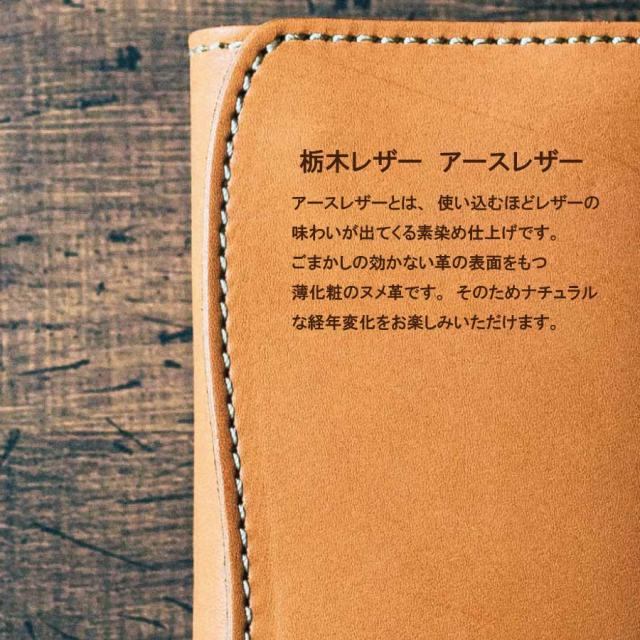 栃木レザー　アースレザー
アースレザーとは、 使い込むほどレザーの
味わいが出てくる素染め仕上げです。
ごまかしの効かない革の表面をもつ
薄化粧のヌメ革です。 そのためナチュラル
な経年変化をお楽しみいただけます。